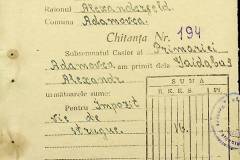 Raionul Alexanderfeld.
Comuna Adamovca.
Chitanța Nr. 194
Subsemnatul Casier al Primăriei
Adamovca am primit dela Gaidabas
Alexandr
următoarele sume:
SUMA
Pentru Impozit
vie de
strugure.
16